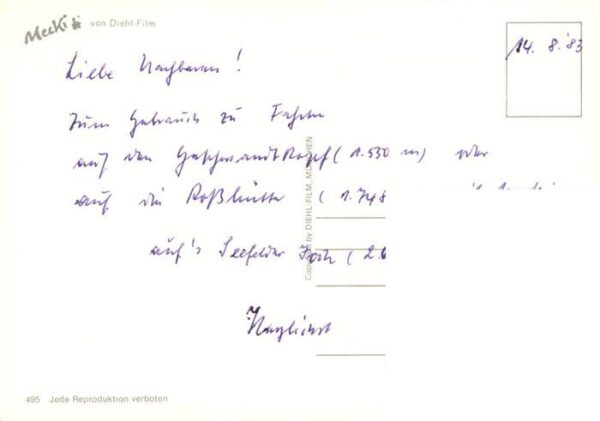 Mecki von Diehl-Film
14. 8. '83
Liebe Nachbarn!
Zum Gebrauch zu Fahrten
auf den Gschwandtkopf (1.550 m) oder
auf die Roßhütte (1.748
auf's Seefelder Joch (2.0
Herzlichst
Copyright by DIEHL-FILM, MÜNCHEN
495 Jede Reproduktion verboten